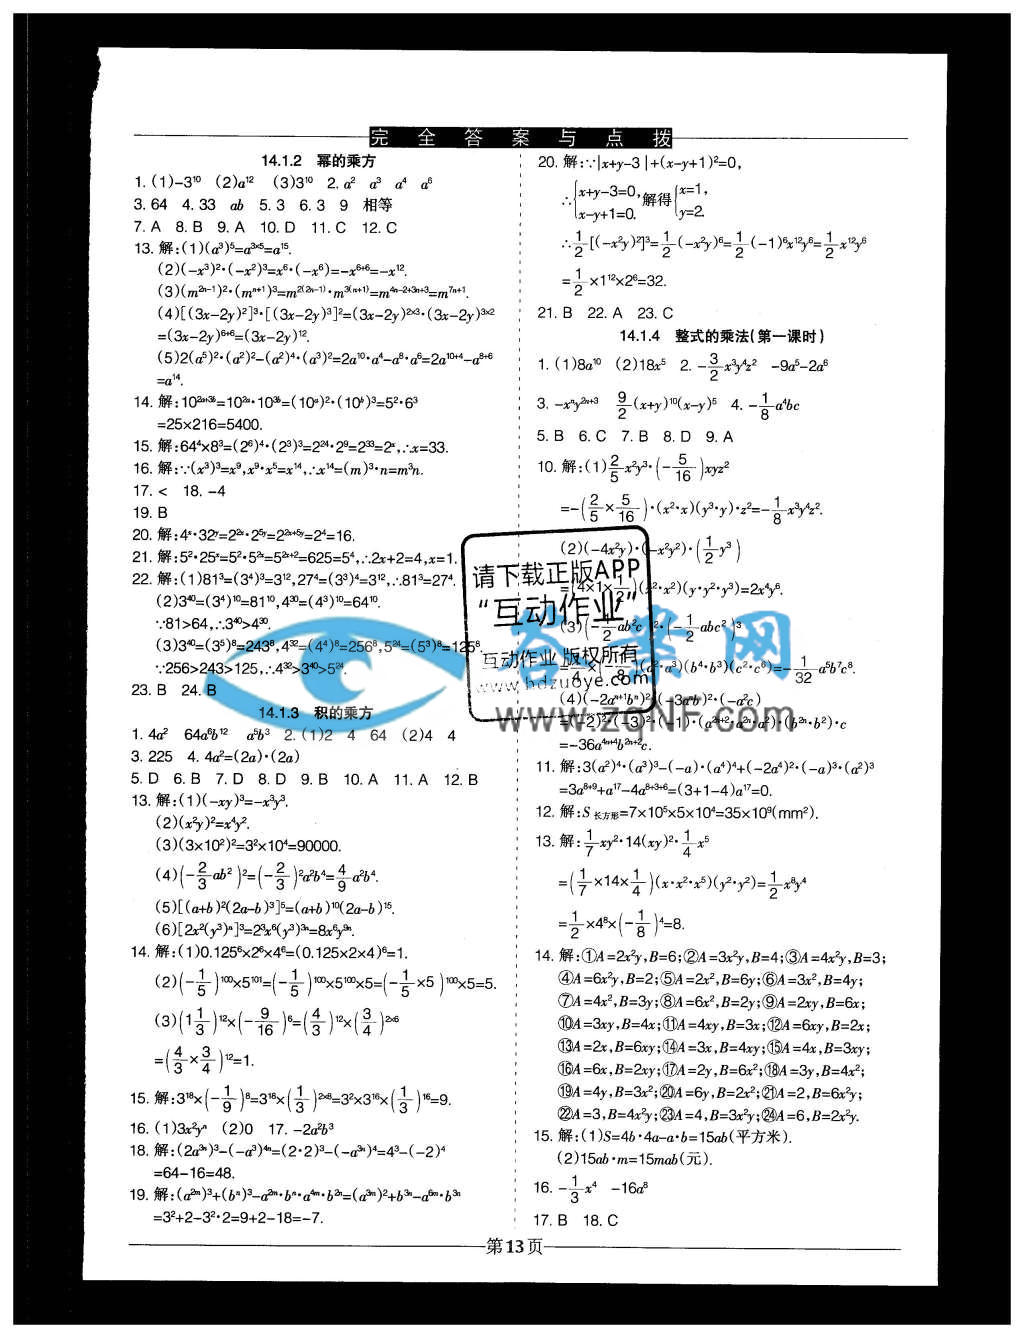 完全答案与点拨
14.1.2 幂的乘方
1. (1)-3¹⁰ (2)a¹² (3)3¹⁰ 2. a² a³ a⁴ a⁶
3. 64 4. 33 ab 5. 3 6. 3 9 相等
7. A 8. B 9. A 10. D 11. C 12. C
13. 解:(1)(a³)⁵=a³ˣ⁵=a¹⁵.
(2)(-x³)²·(-x²)³=x⁶·(-x⁶)=-x⁶⁺⁶=-x¹².
(3)(m²ⁿ⁻¹)²·(mⁿ⁺¹)³=m²⁽²ⁿ⁻¹⁾·m³⁽ⁿ⁺¹⁾=m⁴ⁿ⁻²⁺³ⁿ⁺³=m⁷ⁿ⁺¹.
(4)[(3x-2y)²]³·[(3x-2y)³]²=(3x-2y)²ˣ³·(3x-2y)³ˣ²
=(3x-2y)⁶⁺⁶=(3x-2y)¹².
(5)2(a⁵)²·(a²)²-(a²)⁴·(a³)²=2a¹⁰·a⁴-a⁸·a⁶=2a¹⁰⁺⁴-a⁸⁺⁶
=a¹⁴.
14. 解:10²ᵃ⁺³ᵇ=10²ᵃ·10³ᵇ=(10ᵃ)²·(10ᵇ)³=5²·6³
=25×216=5400.
15. 解:64⁴×8³=(2⁶)⁴·(2³)³=2²⁴·2⁹=2³³=2ˣ,∴x=33.
16. 解:∵(x³)³=x⁹,x⁹·x⁵=x¹⁴,∴x¹⁴=(m)³·n=m³n.
17. < 18. -4
19. B
20. 解:4ˣ·32ʸ=2²ˣ·2⁵ʸ=2²ˣ⁺⁵ʸ=2⁴=16.
21. 解:5²·25ˣ=5²·5²ˣ=5²ˣ⁺²=625=5⁴,∴2x+2=4,x=1.
22. 解:(1)81³=(3⁴)³=3¹²,27⁴=(3³)⁴=3¹²,∴81³=27⁴.
(2)3⁴⁰=(3⁴)¹⁰=81¹⁰,4³⁰=(4³)¹⁰=64¹⁰.
∵81>64,∴3⁴⁰>4³⁰.
(3)3⁴⁰=(3⁵)⁸=243⁸,4³²=(4⁴)⁸=256⁸,5²⁴=(5³)⁸=125⁸.
∵256>243>125,∴4³²>3⁴⁰>5²⁴.
23. B 24. B
14.1.3 积的乘方
1. 4a² 64a⁶b¹² a⁵b³ 2. (1)2 4 64 (2)4 4
3. 225 4. 4a²=(2a)·(2a)
5. D 6. B 7. D 8. D 9. B 10. A 11. A 12. B
13. 解:(1)(-xy)³=-x³y³.
(2)(x²y)²=x⁴y².
(3)(3×10²)²=3²×10⁴=90000.
(4)(-2/3ab²)²=(-2/3)²a²b⁴=4/9a²b⁴.
(5)[(a+b)²(2a-b)³]⁵=(a+b)¹⁰(2a-b)¹⁵.
(6)[2x²(y³)ⁿ]³=2³x⁶(y³)³ⁿ=8x⁶y⁹ⁿ.
14. 解:(1)0.125⁶×2⁶×4⁶=(0.125×2×4)⁶=1.
(2)(-1/5)¹⁰⁰×5¹⁰¹=(-1/5)¹⁰⁰×5¹⁰⁰×5=(-1/5×5)¹⁰⁰×5=5.
(3)(1 1/3)¹²×(-9/16)⁶=(4/3)¹²×(3/4)²ˣ⁶
=(4/3×3/4)¹²=1.
15. 解:3¹⁸×(-1/9)⁸=3¹⁸×(1/3)²ˣ⁸=3²×3¹⁶×(1/3)¹⁶=9.
16. (1)3x²yⁿ (2)0 17. -2a²b³
18. 解:(2a³ⁿ)³-(-a³)⁴ⁿ=(2·2)³-(-a³ⁿ)⁴=4³-(-2)⁴
=64-16=48.
19. 解:(a²ᵐ)³+(bⁿ)³-a²ᵐ·bⁿ·a⁴ᵐ·b²ⁿ=(a³ᵐ)²+b³ⁿ-a⁶ᵐ·b³ⁿ
=3²+2-3²·2=9+2-18=-7.
20. 解:∵|x+y-3|+(x-y+1)²=0,
∴{x+y-3=0, x-y+1=0. 解得{x=1, y=2.
∴1/2[(-x²y)²]³=1/2(-x²y)⁶=1/2(-1)⁶x¹²y⁶=1/2x¹²y⁶
=1/2×1¹²×2⁶=32.
21. B 22. A 23. C
14.1.4 整式的乘法(第一课时)
1. (1)8a¹⁰ (2)18x⁵ 2. -3/2x³y⁴z² -9a⁵-2a⁶
3. -xⁿy²ⁿ⁺³ 9/2(x+y)¹⁰(x-y)⁵ 4. -1/8a⁴bc
5. B 6. C 7. B 8. D 9. A
10. 解:(1)2/5x²y³·(-5/16)xyz²
=-(2/5×5/16)·(x²·x)(y³·y)·z²=-1/8x³y⁴z².
(2)(-4x²y)·(-x²y²)·(1/2y³)
=(4×1×1/2)(x²·x²)(y·y²·y³)=2x⁴y⁶.
(3)(-1/2ab²c)²·(-1/2abc²)³
=1/4×(-1/8)(a²·a³)(b⁴·b³)(c²·c⁶)=-1/32a⁵b⁷c⁸.
(4)(-2aⁿ⁺¹bⁿ)²·(-3aⁿb)²·(-a²c)
=(-2)²·(-3)²·(-1)·(a²ⁿ⁺²·a²ⁿ·a²)·(b²ⁿ·b²)·c
=-36a⁴ⁿ⁺⁴b²ⁿ⁺²c.
11. 解:3(a²)⁴·(a³)³-(-a)·(a⁴)⁴+(-2a⁴)²·(-a)³·(a²)³
=3a⁸⁺⁹+a¹⁷-4a⁸⁺³⁺⁶=(3+1-4)a¹⁷=0.
12. 解:S长方形=7×10⁵×5×10⁴=35×10⁹(mm²).
13. 解:1/7xy²·14(xy)²·1/4x⁵
=(1/7×14×1/4)(x·x²·x⁵)(y²·y²)=1/2x⁸y⁴
=1/2×4⁸×(-1/8)⁴=8.
14. 解:①A=2x²y,B=6;②A=3x²y,B=4;③A=4x²y,B=3;
④A=6x²y,B=2;⑤A=2x²,B=6y;⑥A=3x²,B=4y;
⑦A=4x²,B=3y;⑧A=6x²,B=2y;⑨A=2xy,B=6x;
⑩A=3xy,B=4x;⑪A=4xy,B=3x;⑫A=6xy,B=2x;
⑬A=2x,B=6xy;⑭A=3x,B=4xy;⑮A=4x,B=3xy;
⑯A=6x,B=2xy;⑰A=2y,B=6x²;⑱A=3y,B=4x²;
⑲A=4y,B=3x²;⑳A=6y,B=2x²;㉑A=2,B=6x²y;
㉒A=3,B=4x²y;㉓A=4,B=3x²y;㉔A=6,B=2x²y.
15. 解:(1)S=4b·4a-a·b=15ab(平方米).
(2)15ab·m=15mab(元).
16. -1/3x⁴ -16a⁸
17. B 18. C
请下载正版APP
“互动作业”
互动作业 版权所有
www.hdzuoye.com
答案网
www.zqNF.com
第13页